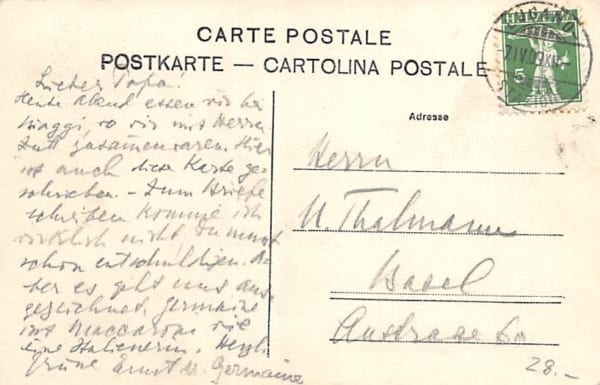 CARTE POSTALE
POSTKARTE — CARTOLINA POSTALE
HELVETIA
5
LUGANO
Adresse
Lieber Papa!
Heute Abend essen wir bei
Biaggi, wo wir mit Herrn
zusammenwaren. Hier
ist auch diese Karte ge-
schrieben. – Zum Briefe
schreiben komme ich
wirklich nicht, Du musst
schon entschuldigen. A-
ber es geht uns aus-
gezeichnet. Germaine
isst Maccaroni wie
eine Italienerin. Herzl.
Grüsse Ernst u. Germaine
Herrn
Thalmann
Basel
Austrasse
28.-